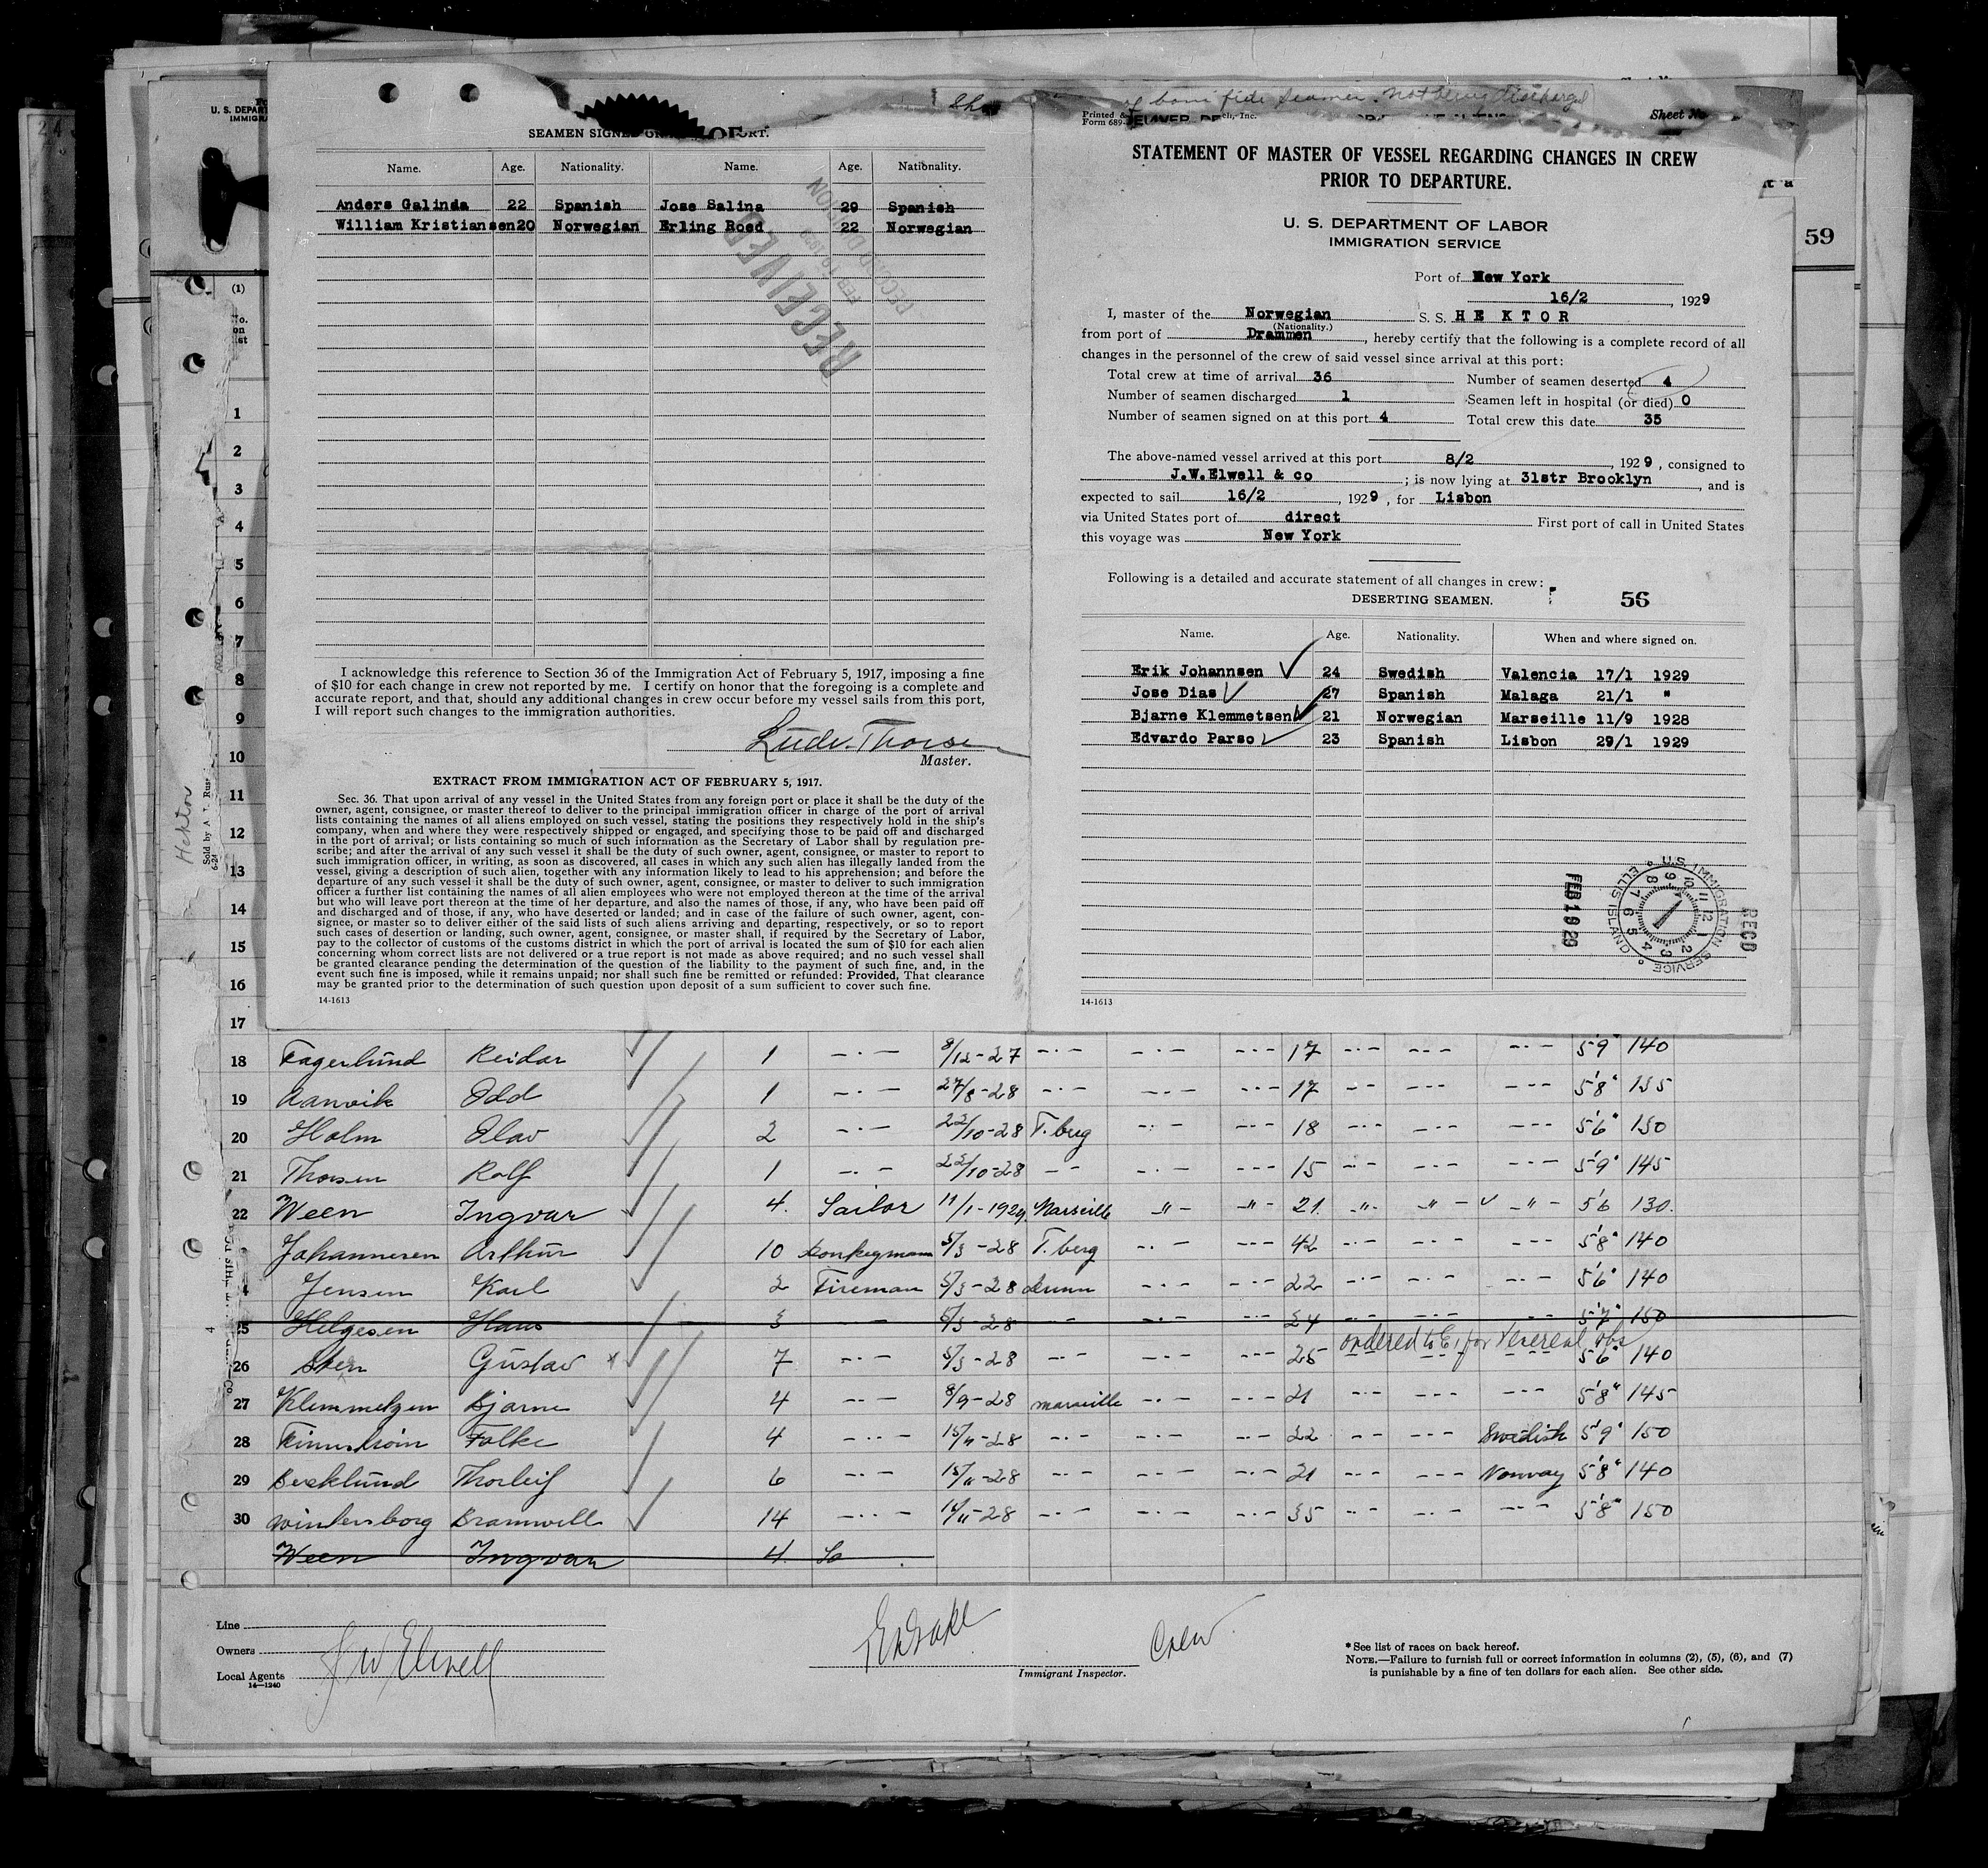 U. S. DEPAR
IMMIGRA
SEAMEN SIGNED ON
Name. Age. Nationality. Name. Age. Nationality.
Anders Galinda 22 Spanish Jose Salina 29 Spanish
William Kristiansen 20 Norwegian Erling Roed 22 Norwegian
RECEIVED
RECORD DIVISION
I acknowledge this reference to Section 36 of the Immigration Act of February 5, 1917, imposing a fine
of $10 for each change in crew not reported by me. I certify on honor that the foregoing is a complete and
accurate report, and that, should any additional changes in crew occur before my vessel sails from this port,
I will report such changes to the immigration authorities.
Master.
EXTRACT FROM IMMIGRATION ACT OF FEBRUARY 5, 1917.
Sec. 36. That upon arrival of any vessel in the United States from any foreign port or place it shall be the duty of the
owner, agent, consignee, or master thereof to deliver to the principal immigration officer in charge of the port of arrival
lists containing the names of all aliens employed on such vessel, stating the positions they respectively hold in the ship's
company, when and where they were respectively shipped or engaged, and specifying those to be paid off and discharged
in the port of arrival; or lists containing so much of such information as the Secretary of Labor shall by regulation pre-
scribe; and after the arrival of any such vessel it shall be the duty of such owner, agent, consignee, or master to report to
such immigration officer, in writing, as soon as discovered, all cases in which any such alien has illegally landed from the
vessel, giving a description of such alien, together with any information likely to lead to his apprehension; and before the
departure of any such vessel it shall be the duty of such owner, agent, consignee, or master to deliver to such immigration
officer a further list containing the names of all alien employees who were not employed thereon at the time of the arrival
but who will leave port thereon at the time of her departure, and also the names of those, if any, who have been paid off
and discharged and of those, if any, who have deserted or landed; and in case of the failure of such owner, agent, con-
signee, or master so to deliver either of the said lists of such aliens arriving and departing, respectively, or so to report
such cases of desertion or landing, such owner, agent, consignee, or master shall, if required by the Secretary of Labor,
pay to the collector of customs of the customs district in which the port of arrival is located the sum of $10 for each alien
concerning whom correct lists are not delivered or a true report is not made as above required; and no such vessel shall
be granted clearance pending the determination of the question of the liability to the payment of such fine, and, in the
event such fine is imposed, while it remains unpaid; nor shall such fine be remitted or refunded: Provided, That clearance
may be granted prior to the determination of such question upon deposit of a sum sufficient to cover such fine.
14-1613
bona fide seamen. not being discharged
Printed &
Form 689
Sheet No
STATEMENT OF MASTER OF VESSEL REGARDING CHANGES IN CREW
PRIOR TO DEPARTURE.
U. S. DEPARTMENT OF LABOR
IMMIGRATION SERVICE
59
Port of New York
16/2, 1929
I, master of the Norwegian S. S. HEKTOR
(Nationality.)
from port of Drammen, hereby certify that the following is a complete record of all
changes in the personnel of the crew of said vessel since arrival at this port:
Total crew at time of arrival 36 Number of seamen deserted 4
Number of seamen discharged 1 Seamen left in hospital (or died) 0
Number of seamen signed on at this port 4 Total crew this date 35
The above-named vessel arrived at this port 8/2, 1929, consigned to
J.W.Elwell & co; is now lying at 31str Brooklyn, and is
expected to sail 16/2, 1929, for Lisbon
via United States port of direct First port of call in United States
this voyage was New York
Following is a detailed and accurate statement of all changes in crew:
DESERTING SEAMEN. 56
Name. Age. Nationality. When and where signed on.
Erik Johannsen 24 Swedish Valencia 17/1 1929
Jose Dias 27 Spanish Malaga 21/1 "
Bjarne Klemmetsen 21 Norwegian Marseille 11/9 1928
Edvardo Parso 23 Spanish Lisbon 29/1 1929
U.S. IMMIGRATION SERVICE ELLIS ISLAND
RECD
14-1613
(1)
1
2
3
4
5
6
7
8
9
10
11
12
13
14
15
16
17
Hektor
18 Fagerlund Reidar 1 8/12-27 17 5'9" 140
19 Aanvik Odd 1 27/8-28 17 5'8" 135
20 Holm Olav 2 22/10-28 T.berg 18 5'6" 130
21 Thorsen Rolf 1 22/10-28 15 5'9" 145
22 Ween Ingvar 4. Sailor 11/1-1929. Marseille 21. 5'6 130.
Johannesen Arthur 10 Donkeymann 5/3-28 T.berg 42 5'8" 140
4 Jensen Karl 2 Fireman 5/3-28 22 5'6" 140
25 Helgesen Hans 3 5/3-28 24 5'7" 150
26 Gustav 7 5/3-28 25 5'6" 140
ordered to E.I. for Venereal obs
27 Klemmetzen Bjarne 4 8/9-28 marseille 21 5'8" 145
28 Folke 4 15/11-28 22 Swedish 5'9" 150
29 Thorleif 6 15/11-28 21 Norway 5'8" 140
30 Wintersborg Bramwell 14 16/11-28 35 5'8" 150
Ween Ingvar 4. Sa
Line
Owners
Local Agents J W Elwell
14—1240
Immigrant Inspector.
Crew
* See list of races on back hereof.
NOTE.—Failure to furnish full or correct information in columns (2), (5), (6), and (7)
is punishable by a fine of ten dollars for each alien. See other side.